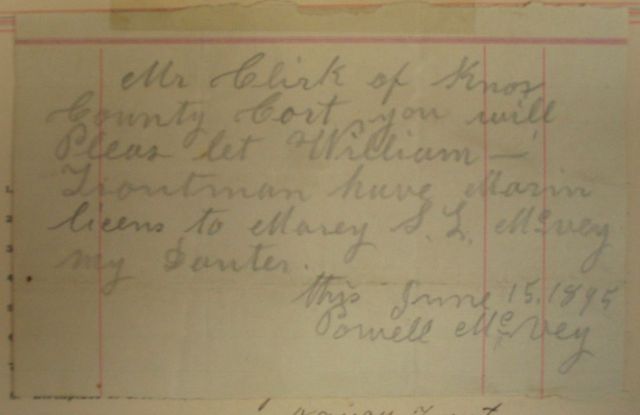 Mr Clirk of Knox
County Cort you will
Pleas let William —
Troutman have Marin
licens to Marey S. L. McVey
my Dauter.
this June 15, 1895
Powell McVey